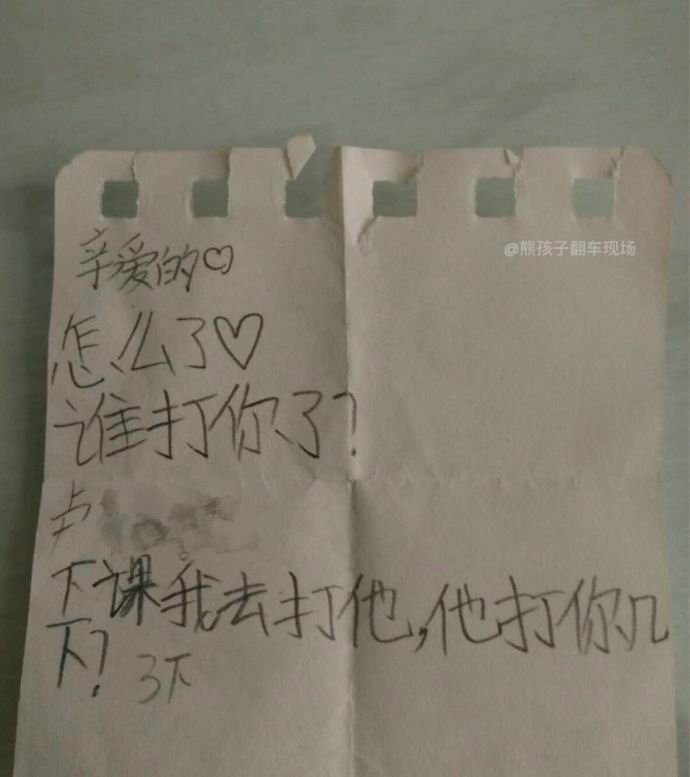 @熊孩子翻车现场
亲爱的♡
怎么了♡
谁打你了?
卢
下课我去打他,他打你几
下?
3下